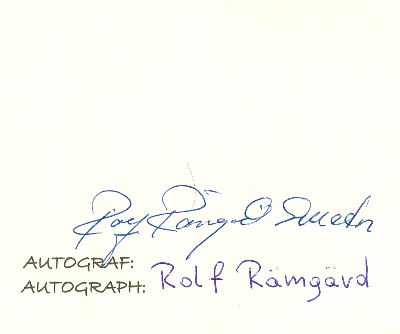 Rolf Rämgård Sweden
AUTOGRAF:
AUTOGRAPH: Rolf Rämgård